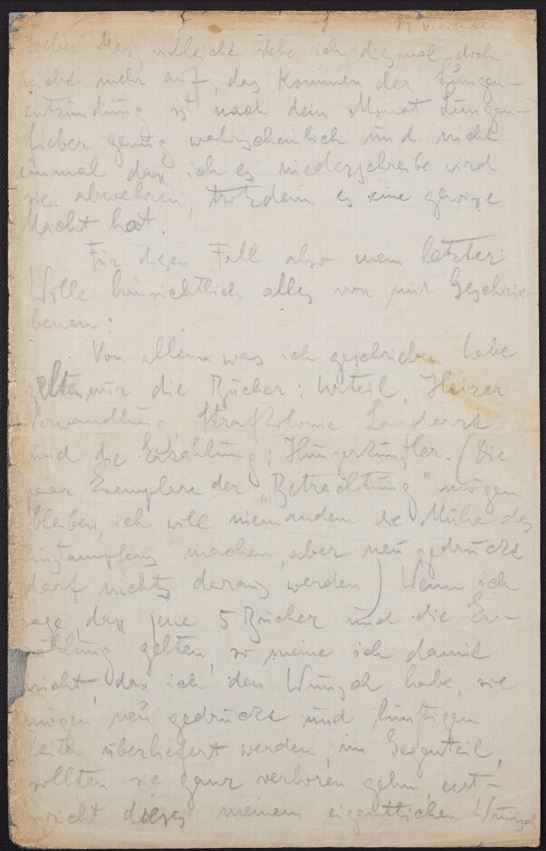 29 November
Lieber Max, vielleicht stehe ich diesmal doch
nicht mehr auf, das Kommen der Lungen-
entzündung ist nach dem Monat Lungen-
fieber genug wahrscheinlich und nicht
einmal dass ich es niederschreibe wird
sie abwehren, trotzdem es eine gewisse
Macht hat.
Für diesen Fall also mein letzter
Wille hinsichtlich alles von mir Geschrie-
benen:
Von allem was ich geschrieben habe
gelten nur die Bücher: Urteil, Heizer
Verwandlung, Strafkolonie Landarzt
und die Erzählung: Hungerkünstler. (Die
paar Exemplare der „Betrachtung“ mögen
bleiben, ich will niemandem die Mühe des
Einstampfens machen, aber neu gedruckt
darf nichts daraus werden) Wenn ich
sage, dass jene 5 Bücher und die Er-
zählung gelten, so meine ich damit
nicht, dass ich den Wunsch habe, sie
mögen neu gedruckt und künftigen
Zeiten überliefert werden, im Gegenteil,
sollten sie ganz verloren gehn, ent-
spricht dieses meinem eigentlichen Wunsch